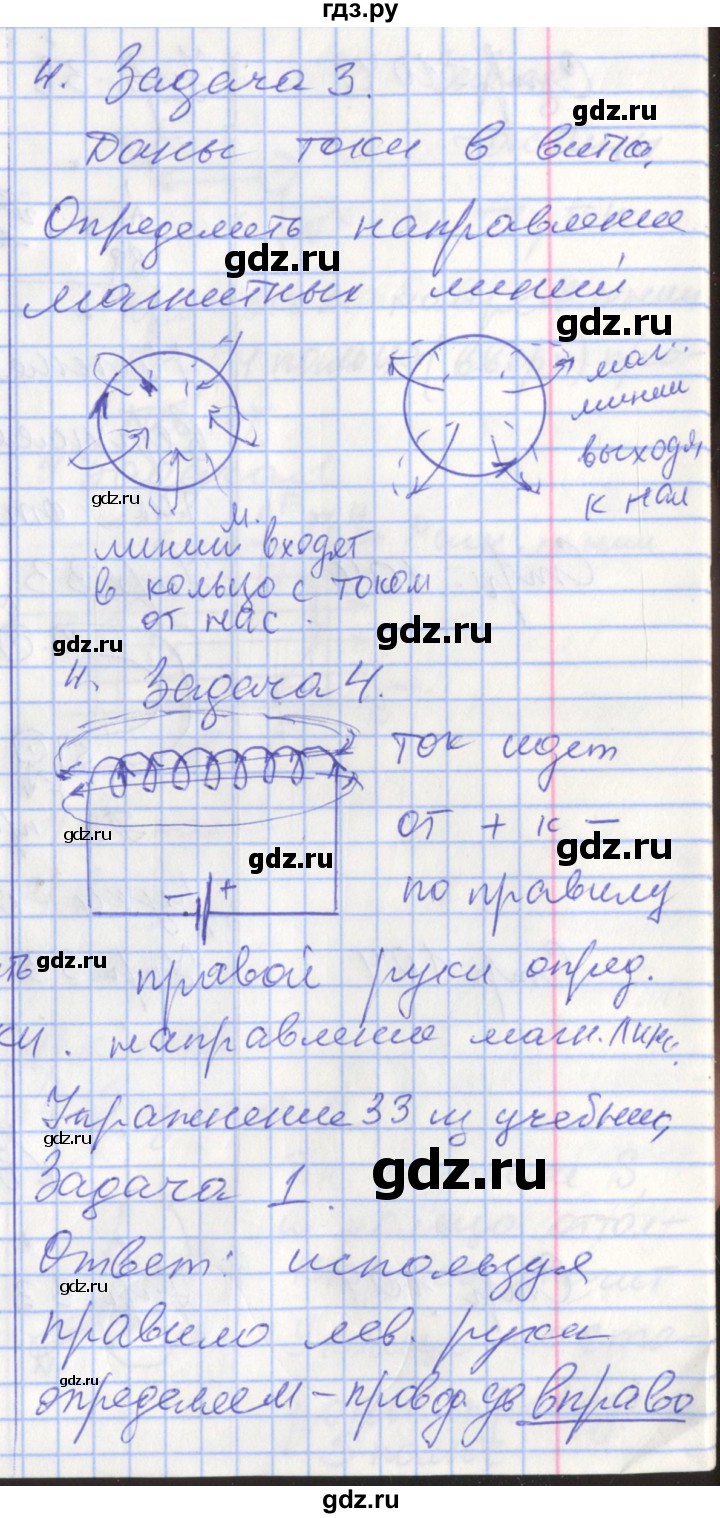 гдз.ру
4. Задача 3.
gdz.ru
Даны токи в витке.
Определить направление
gdz.ru
магнитных линий
gdz.ru
маг.
линии
выходят
к нам
gdz.ru
м.
линии входят
в кольцо с током
от нас.
gdz.ru
gdz.ru
4. Задача 4.
ток идет
от + к −
gdz.ru
gdz.ru
gdz.ru
− +
по правилу
gdz.ru
правой руки опред.
направление магн. лин.
Упражнение 33 из учебник
gdz.ru
gdz.ru
Задача 1.
Ответ: используя
gdz.ru
правило лев. руки
gdz.ru
определяем – провода вправо
gdz.ru